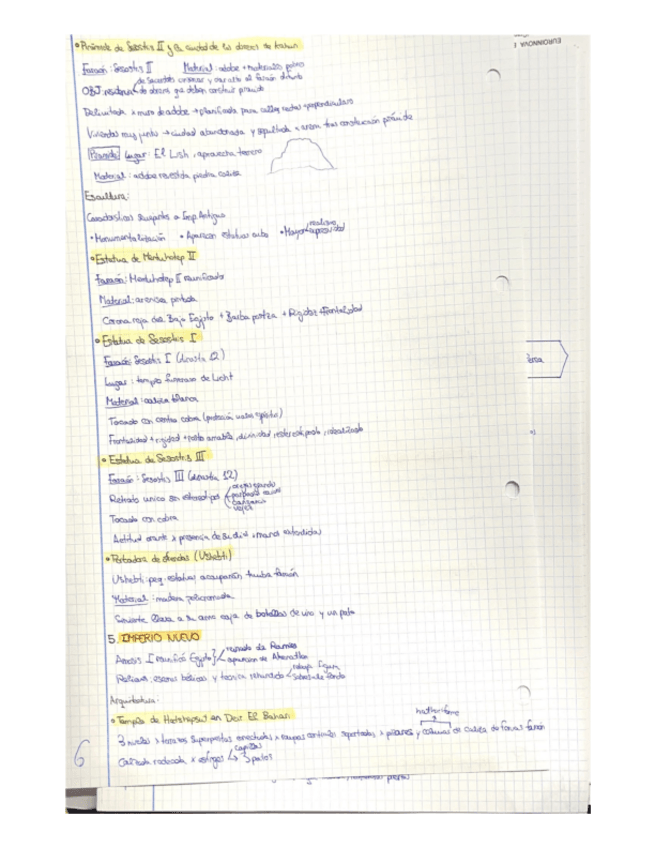 • Pirámide de Sesostris II y la ciudad de los obreros de Kahun
Faraón: Sesostris II Material: adobe + materiales pobres
OBJ: residencia de sacerdotes
de obreros que deben construir pirámide
Delimitada x muro de adobe → planificada para calles rectas + perpendiculares
Viviendas muy juntas → ciudad abandonada y sepultada x arena tras construcción pirámide
Pirámide Lugar: El Lisht, aprovecha terreno
Material: adobe revestida piedra caliza
Escultura:
Características semejantes a Imp. Antiguo
• Monumentalización • Aparecen estatuas cubo • Mayor realismo
expresividad
• Estatua de Mentuhotep II
Faraón: Mentuhotep II reunificador
Material: arenisca pintada
Corona roja del Bajo Egipto + Barba postiza + Rigidez + Frontalidad
• Estatua de Sesostris I
Faraón: Sesostris I (dinastía 12)
Lugar: templo funerario de Licht
Material: caliza blanca
Tocado con cobra
Frontalidad + rigidez + rostro amable, divinidad, idealizado
• Estatua de Sesostris III
Faraón: Sesostris III (dinastía 12)
Retrato unico sin estereotipos orejas grandes
cansancio
vejez
Tocado con cobra
Actitud orante x presencia de su dios + manos extendidas
• Portadora de ofrendas (Ushebti)
Ushebti: peq. estatuas acompañan tumba faraón
Material: madera policromada
Sirviente lleva a su amo caja de botellas de vino y un pato
5. IMPERIO NUEVO
Amosis I reunificó Egipto reinado de Ramsés
aparición de Akenatón
Relieves: escenas bélicas y tecnica rehundido rebaja figura
sobresale fondo
Arquitectura:
• Templo de Hatshepsut en Deir El Bahari
hathoriformes
3 niveles x terrazas superpuestas conectadas x rampas centrales soportadas x pilares y columnas de caliza de formas faraón
Calzada rodeada x esfinges → 3 patios
capillas
6